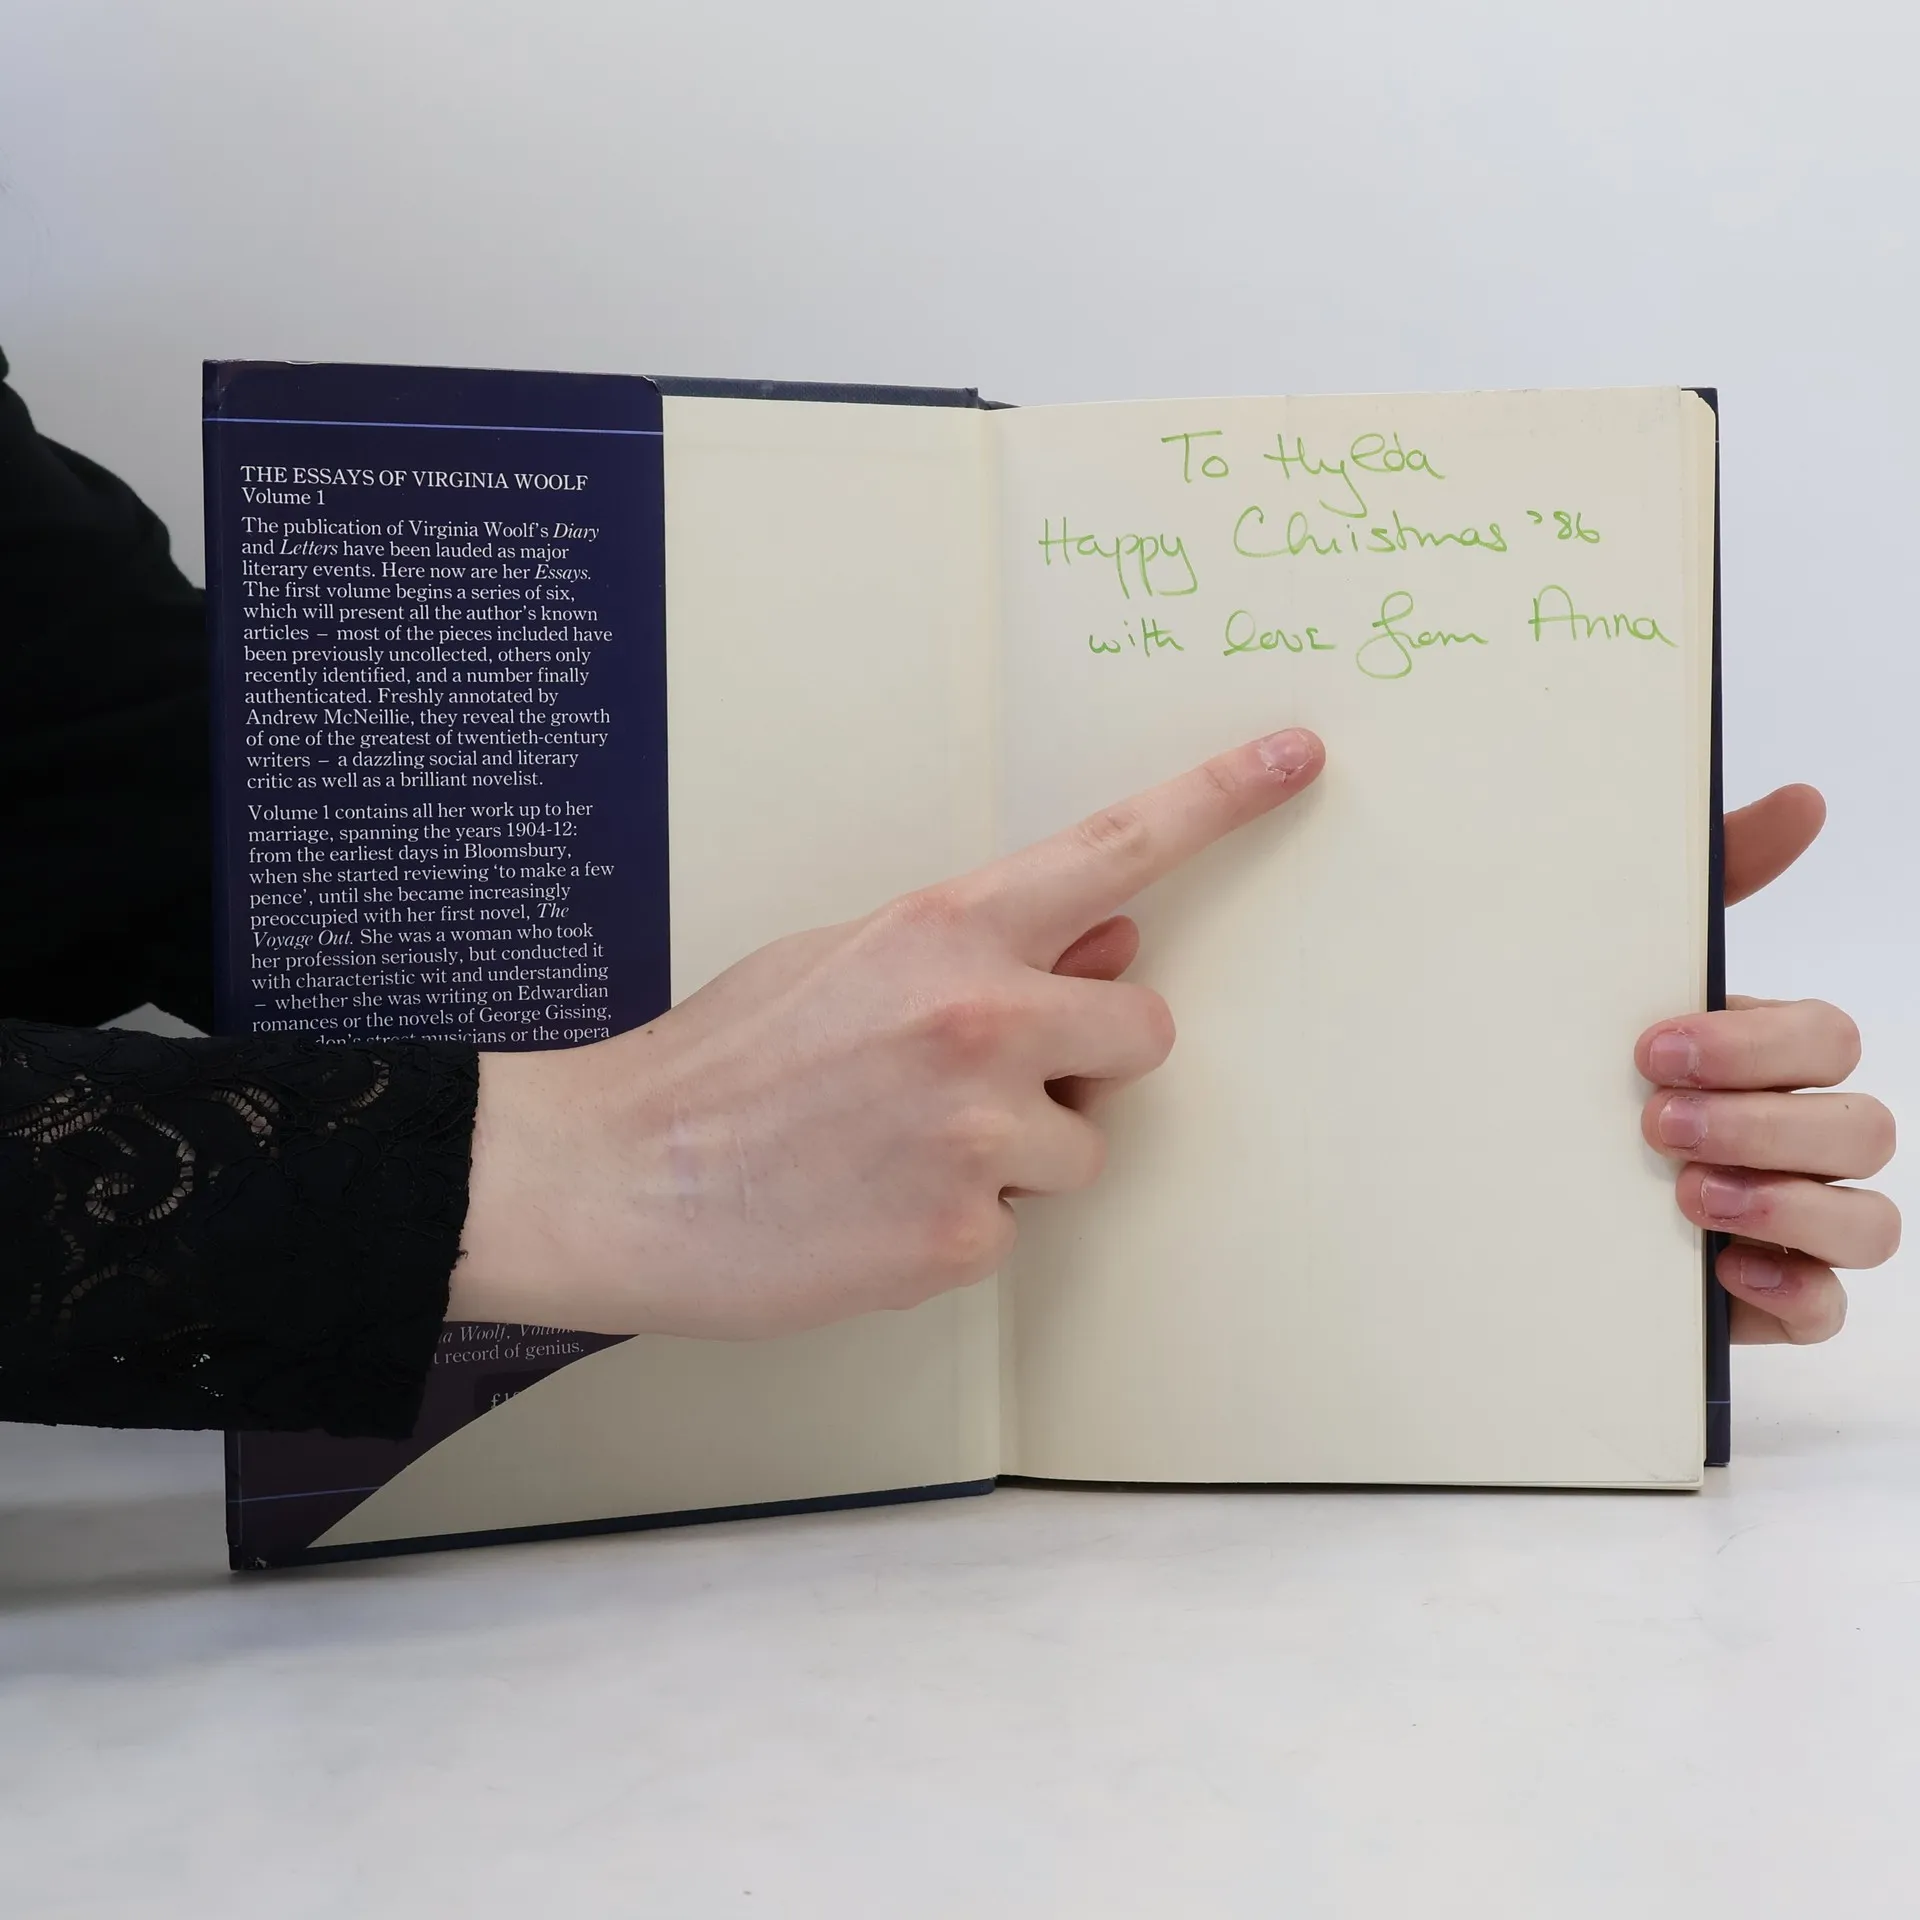 THE ESSAYS OF VIRGINIA WOOLF
Volume 1
The publication of Virginia Woolf's Diary
and Letters have been lauded as major
literary events. Here now are her Essays.
The first volume begins a series of six,
which will present all the author's known
articles – most of the pieces included have
been previously uncollected, others only
recently identified, and a number finally
authenticated. Freshly annotated by
Andrew McNeillie, they reveal the growth
of one of the greatest of twentieth-century
writers – a dazzling social and literary
critic as well as a brilliant novelist.
Volume 1 contains all her work up to her
marriage, spanning the years 1904-12:
from the earliest days in Bloomsbury,
when she started reviewing 'to make a few
pence', until she became increasingly
preoccupied with her first novel, The
Voyage Out. She was a woman who took
her profession seriously, but conducted it
with characteristic wit and understanding
– whether she was writing on Edwardian
romances or the novels of George Gissing,
street musicians or the opera
Woolf, Volume
record of genius.
To Hylda
Happy Christmas '86
with love from Anna